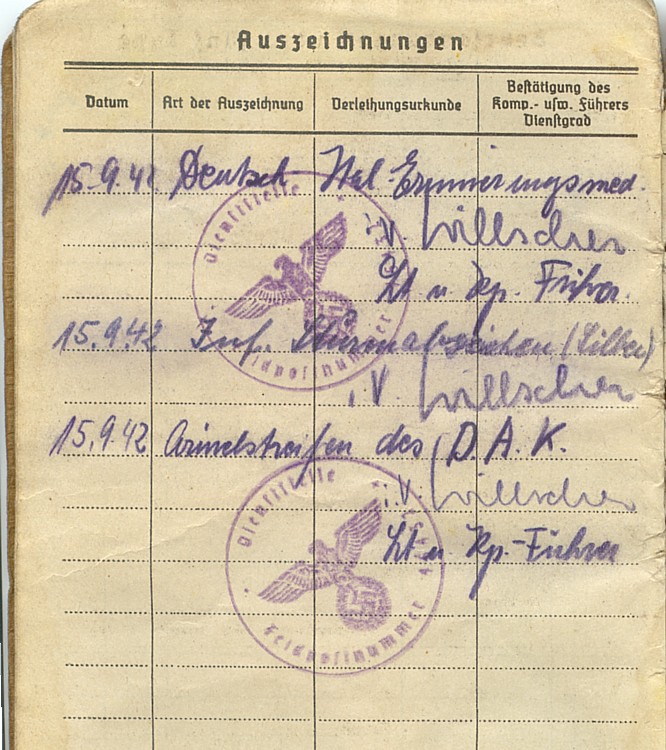 Auszeichnungen
Datum
Art der Auszeichnung
Verleihungsurkunde
Bestätigung des
Komp.- usw. Führers
Dienstgrad
15.9.42 Deutsch Ital. Erinnerungsmed.
i.V.
Lt u. Kp. Führer
15.9.42 Inf. Sturmabzeichen (Silber)
i.V.
15.9.42 Ärmelstreifen des D.A.K.
i.V.
Lt u. Kp.-Führer
Dienststelle
Feldpostnummer
Dienststelle
Feldpostnummer